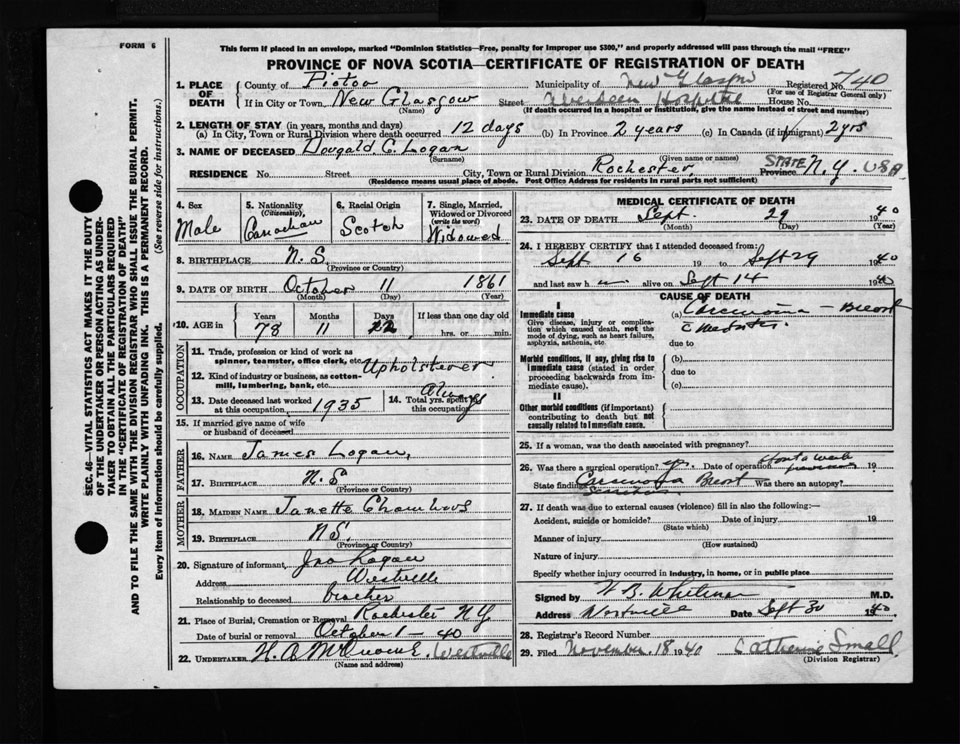 FORM 6
This form if placed in an envelope, marked "Dominion Statistics—Free, penalty for improper use $300," and properly addressed will pass through the mail "FREE"
PROVINCE OF NOVA SCOTIA—CERTIFICATE OF REGISTRATION OF DEATH
SEC. 46—VITAL STATISTICS ACT MAKES IT THE DUTY
OF THE UNDERTAKER OR PERSON ACTING AS UNDER-
TAKER TO OBTAIN ALL THE PARTICULARS REQUIRED
IN THE "CERTIFICATE OF REGISTRATION OF DEATH"
AND TO FILE THE SAME WITH THE DIVISION REGISTRAR WHO SHALL ISSUE THE BURIAL PERMIT.
WRITE PLAINLY WITH UNFADING INK. THIS IS A PERMANENT RECORD.
Every item of Information should be carefully supplied. (See reverse side for instructions.)
1. PLACE OF DEATH County of Pictou Municipality of New Glasgow Registered No. 740
(For use of Registrar General only)
If in City or Town New Glasgow Street Aberdeen Hospital House No.
(Name) (If death occurred in a hospital or institution, give the name instead of street and number)
2. LENGTH OF STAY (in years, months and days)
(a) In City, Town or Rural Division where death occurred 12 days (b) In Province 2 years (c) In Canada (if immigrant) 2 yrs
3. NAME OF DECEASED Dougald C. Logan
(Surname) (Given name or names)
RESIDENCE No. Street City, Town or Rural Division Rochester, STATE Province N.Y. USA
(Residence means usual place of abode. Post Office Address for residents in rural parts not sufficient)
4. Sex Male
5. Nationality (Citizenship) Canadian
6. Racial Origin Scotch
7. Single, Married, Widowed or Divorced (write the word) Widowed
8. BIRTHPLACE N.S.
(Province or Country)
9. DATE OF BIRTH October 11 1861
(Month) (Day) (Year)
10. AGE in Years Months Days If less than one day old
78 11 hrs. or min.
OCCUPATION
11. Trade, profession or kind of work as spinner, teamster, office clerk, etc. Upholsterer
12. Kind of industry or business, as cotton-mill, lumbering, bank, etc.
13. Date deceased last worked at this occupation 1935 14. Total yrs. spent at this occupation Always
15. If married give name of wife or husband of deceased
FATHER
16. NAME James Logan,
17. BIRTHPLACE N.S.
(Province or Country)
MOTHER
18. MAIDEN NAME Janette Chambers
19. BIRTHPLACE N.S.
(Province or Country)
20. Signature of informant Jno Logan
Address Westville
Relationship to deceased brother
21. Place of Burial, Cremation or Removal Rochester N.Y
Date of burial or removal October 1 - 40
22. UNDERTAKER Westville
(Name and address)
MEDICAL CERTIFICATE OF DEATH
23. DATE OF DEATH Sept. 29 1940
(Month) (Day) (Year)
24. I HEREBY CERTIFY that I attended deceased from:
Sept 16 19 to Sept 29 1940
and last saw h im alive on Sept 14 1940
CAUSE OF DEATH
I
Immediate cause
Give disease, injury or complication which caused death, not the mode of dying, such as heart failure, asphyxia, asthenia, etc.
(a) Carcinoma Breast
due to
Morbid conditions, if any, giving rise to immediate cause (stated in order proceeding backwards from immediate cause).
(b)
due to
(c)
II
Other morbid conditions (if important) contributing to death but not causally related to immediate cause.
25. If a woman, was the death associated with pregnancy?
26. Was there a surgical operation? yes. Date of operation 19
State findings Carcinoma Breast Was there an autopsy?
27. If death was due to external causes (violence) fill in also the following:—
Accident, suicide or homicide? Date of injury 19
(State which)
Manner of injury
(How sustained)
Nature of injury
Specify whether injury occurred in industry, in home, or in public place
Signed by W B Whitman M.D.
Address Westville Date Sept 30 1940
28. Registrar's Record Number
29. Filed November 18 1940 Catherine Small
(Division Registrar)